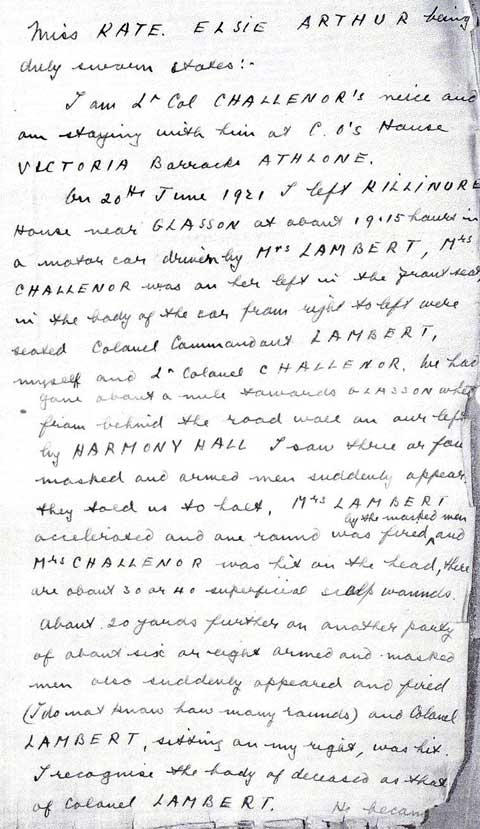 Miss KATE. ELSIE ARTHUR being
duly sworn states:-
I am Lt Col CHALLENOR's neice and
am staying with him at C.O's House
VICTORIA Barracks ATHLONE.
On 20th June 1921 I left KILLINURE
House near GLASSON at about 19.15 hours in
a motor car driven by Mrs LAMBERT, Mrs
CHALLENOR was on her left in the front seat,
in the body of the car from right to left were
seated Colonel Commandant LAMBERT,
myself and Lt Colonel CHALLENOR. We had
gone about a mile towards GLASSON when
from behind the road wall on our left
by HARMONY HALL I saw three or four
masked and armed men suddenly appear.
they told us to halt, Mrs LAMBERT
by the masked men
accelerated and one round was fired, and
Mrs CHALLENOR was hit on the head, there
are about 30 or 40 superficial scalp wounds.
About 20 yards further on another party
of about six or eight armed and masked
men also suddenly appeared and fired
(I do not know how many rounds) and Colonel
LAMBERT, sitting on my right, was hit.
I recognise the body of deceased as that
of Colonel LAMBERT. He became